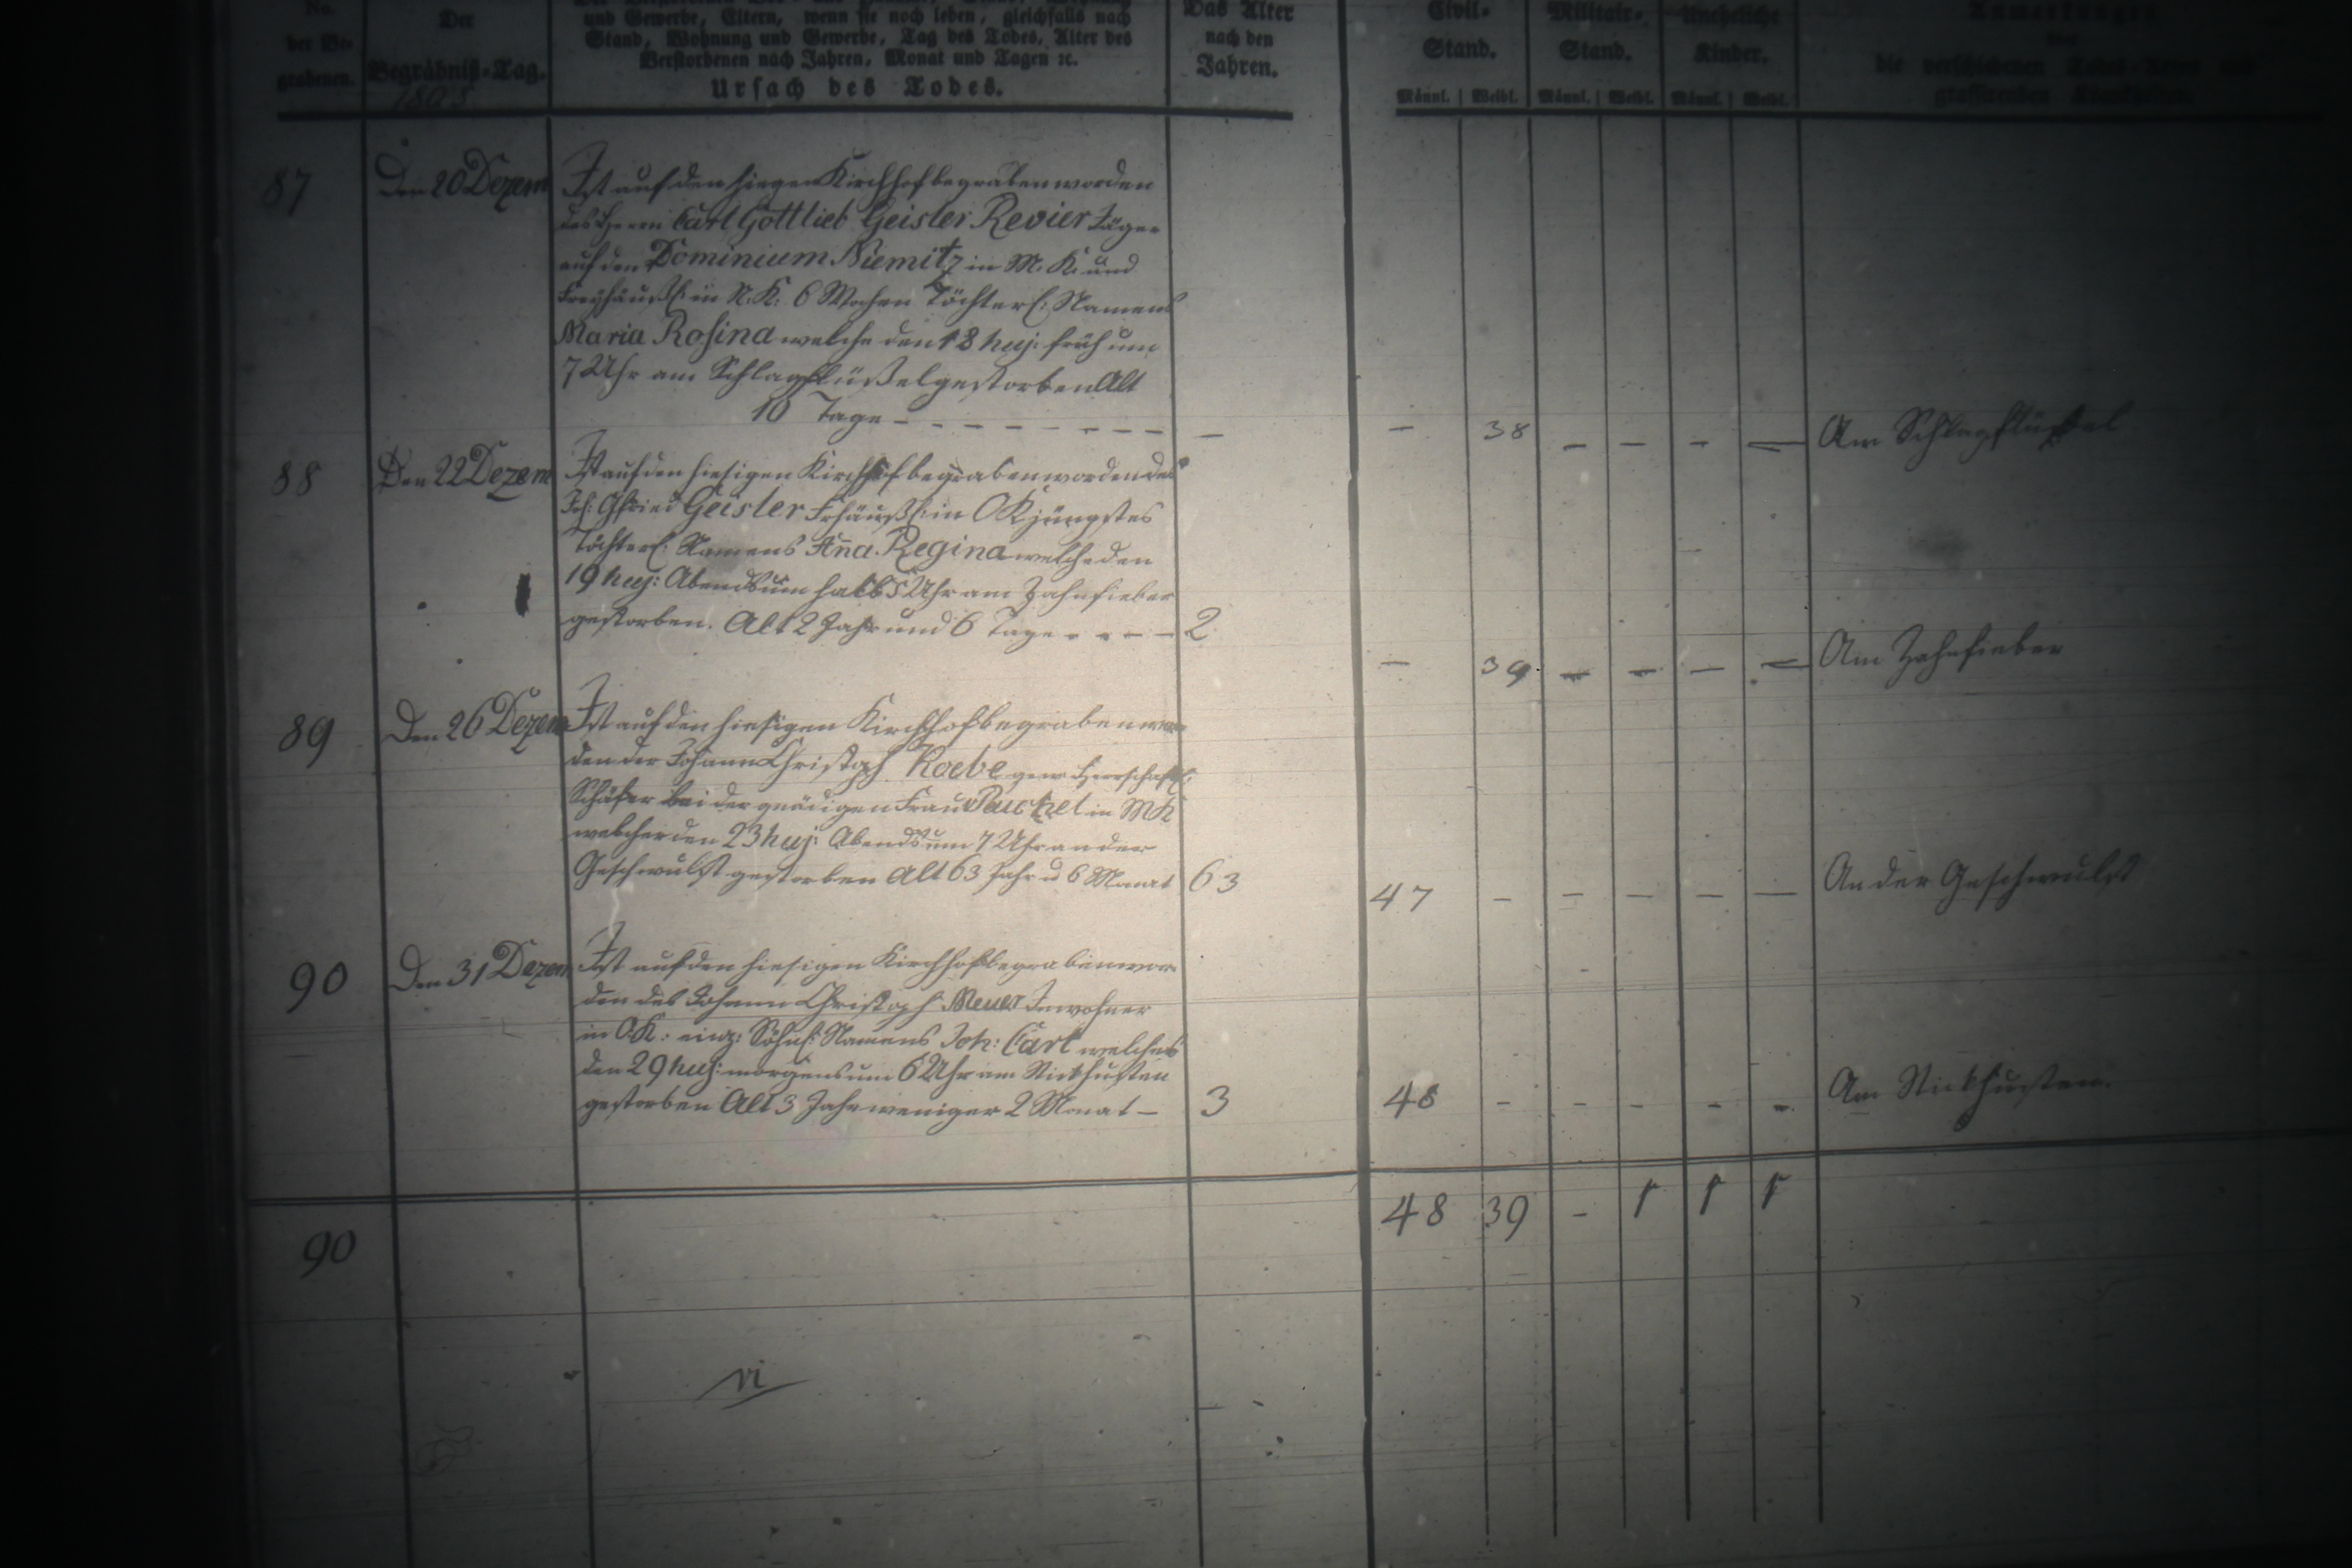 No.
der Be-
grabenen.
Der
Begräbniß-Tag.
1805
und Gewerbe, Eltern, wenn sie noch leben, gleichfalls nach
Stand, Wohnung und Gewerbe, Tag des Todes, Alter des
Verstorbenen nach Jahren, Monat und Tagen ꝛc.
Ursach des Todes.
Das Alter
nach den
Jahren.
Civil-
Stand.
Militair-
Stand.
Uneheliche
Kinder.
Anmerkungen
die verschiedenen Todes-Arten und
grassirenden Krankheiten.
Männl. | Weibl. Männl. | Weibl. Männl. | Weibl.
87 Den 20 Dezem Ist auf den hiegen Kirchhof begraben worden
des Herrn Carl Gottlieb Geisler Revier Jäger
auf den Dominium Niemitz in M. K. und
Freyhäußl: in N. K: 6 Wochen Töchterl: Namens
Maria Rosina welche den 18 huj: früh um
7 Uhr am Schlagflüßel gestorben Alt
10 Tage - - - - - - - - - - 38 - - - - Am Schlagflüßel
88 Den 22 Dezem Ist auf den hiesigen Kirchhof begraben worden des
Joh: Gfried Geisler Frhäußl: in OK jüngstes
Töchterl: Namens Aña Regina welche den
19 huj: Abends um halb 5 Uhr am Zahnfieber
gestorben. Alt 2 Jahr und 6 Tage - - - - 2
- 39 - - - - Am Zahnfieber
89 Den 26 Dezem Ist auf den hiesigen Kirchhof begraben wor
den der Johann Christoph Koebe gew. Herrschaftl:
Schäfer bei der gnädigen Frau in MK
welcher den 23 huj: Abends um 7 Uhr an der
Geschwulst gestorben Alt 63 Jahr u 6 Monat 63
47 - - - - - An der Geschwulst
90 Den 31 Dezem Ist auf den hiesigen Kirchhof begraben wor
den des Johann Christoph Meuer Inwohner
in O.K: einz: Söhnl: Namens Joh: Carl welches
den 29 huj: morgens um 6 Uhr am Stickhusten
gestorben Alt 3 Jahr weniger 2 Monat - 3
48 - - - - - Am Stickhusten.
90 48 39 -